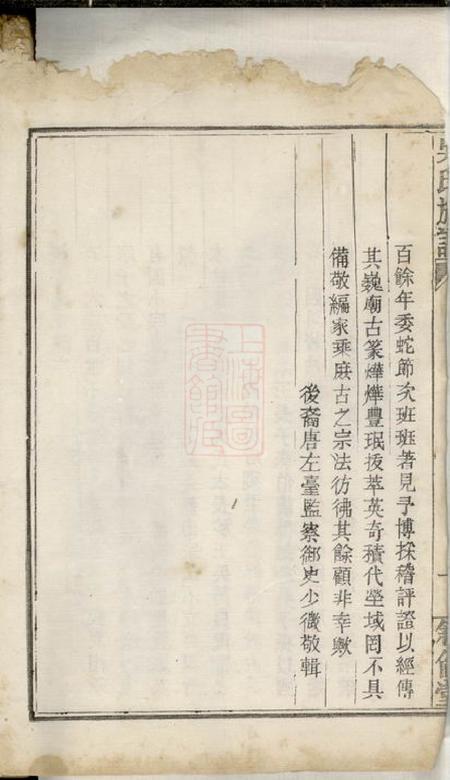 吳氏族譜
百餘年委蛇節次班班著見予博採稽評證以經傳
其巍廟古篆燁燁豐珉拔萃英奇積代塋域罔不具
備敬編家乘庶古之宗法彷彿其餘顧非幸歟
後裔唐左臺監察御史少微敬輯
上海圖書館印